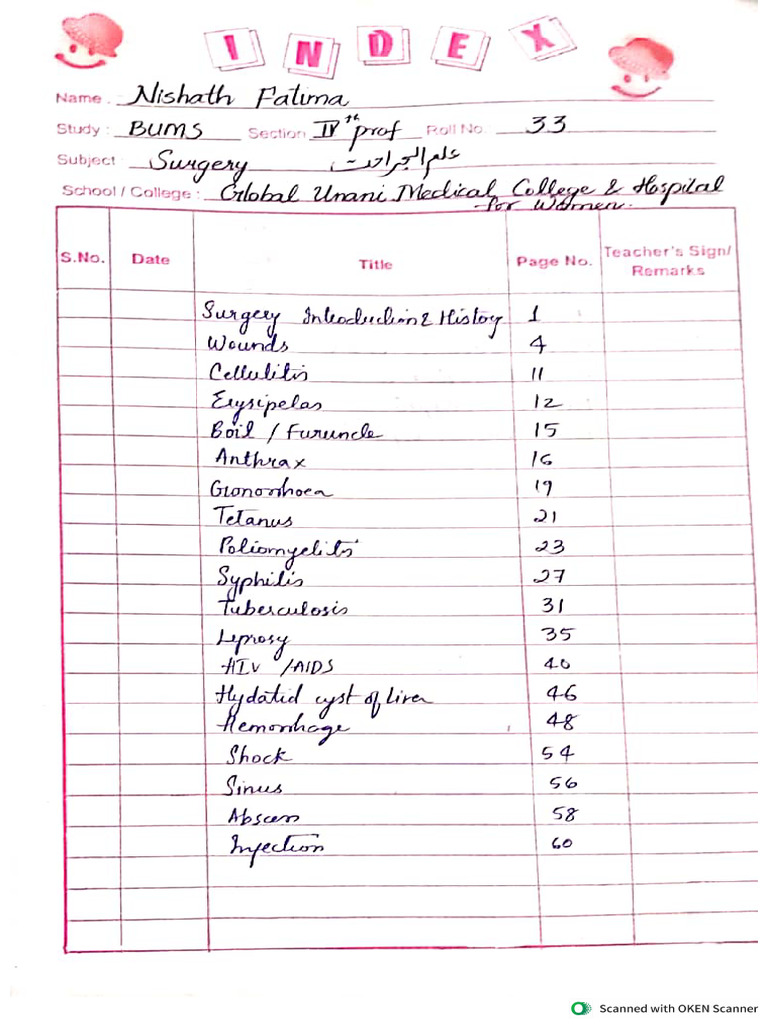 INDEX
Name : Nishath Fatima
Study : BUMS Section IVth prof Roll No. 33
Subject : Surgery علم الجراحت
School / College : Global Unani Medical College & Hospital
for Women.
S.No. Date Title Page No. Teacher's Sign/ Remarks
Surgery Introduction & History 1
Wounds 4
Cellulitis 11
Erysipelas 12
Boil / Furuncle 15
Anthrax 16
Gonorrhoea 19
Tetanus 21
Poliomyelitis 23
Syphilis 27
Tuberculosis 31
Leprosy 35
HIV /AIDS 40
Hydatid cyst of liver 46
Hemorrhage 48
Shock 54
Sinus 56
Abscess 58
Injection 60
Scanned with OKEN Scanner